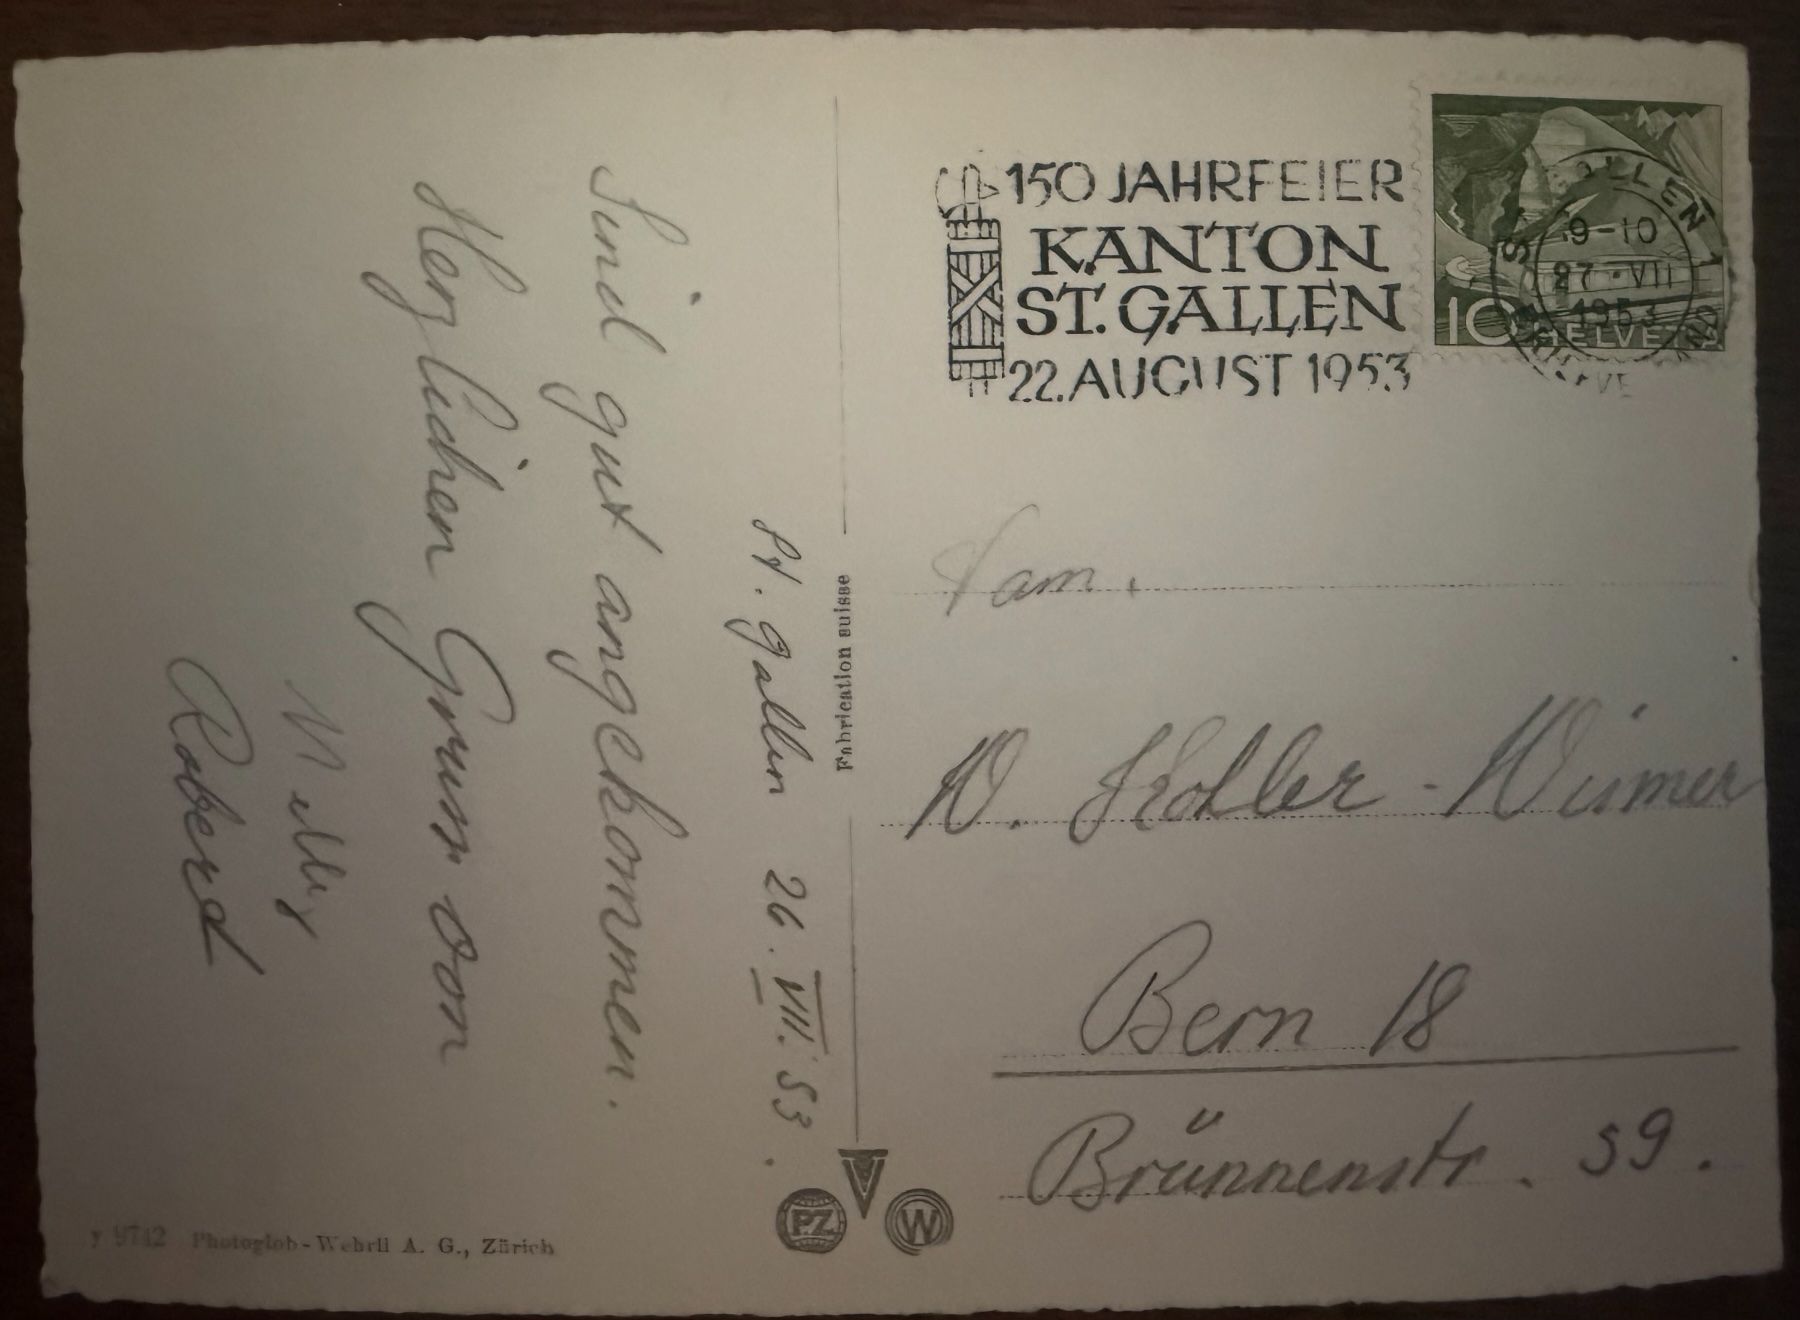 St. Gallen 26. VII. 53.
Sind gut angekommen.
Herzlichen Gruss von
Nelly
Roberd
Fabrication suisse
y 9742 Photoglob-Wehrli A. G., Zürich
P.Z.
W
150 JAHRFEIER
KANTON
ST. GALLEN
22. AUGUST 1953
ST. GALLEN 1
9-10
27·VII
1953
10 HELVETIA
Fam.
W. Kohler - Wismer
Bern 18
Brünnenstr. 59.